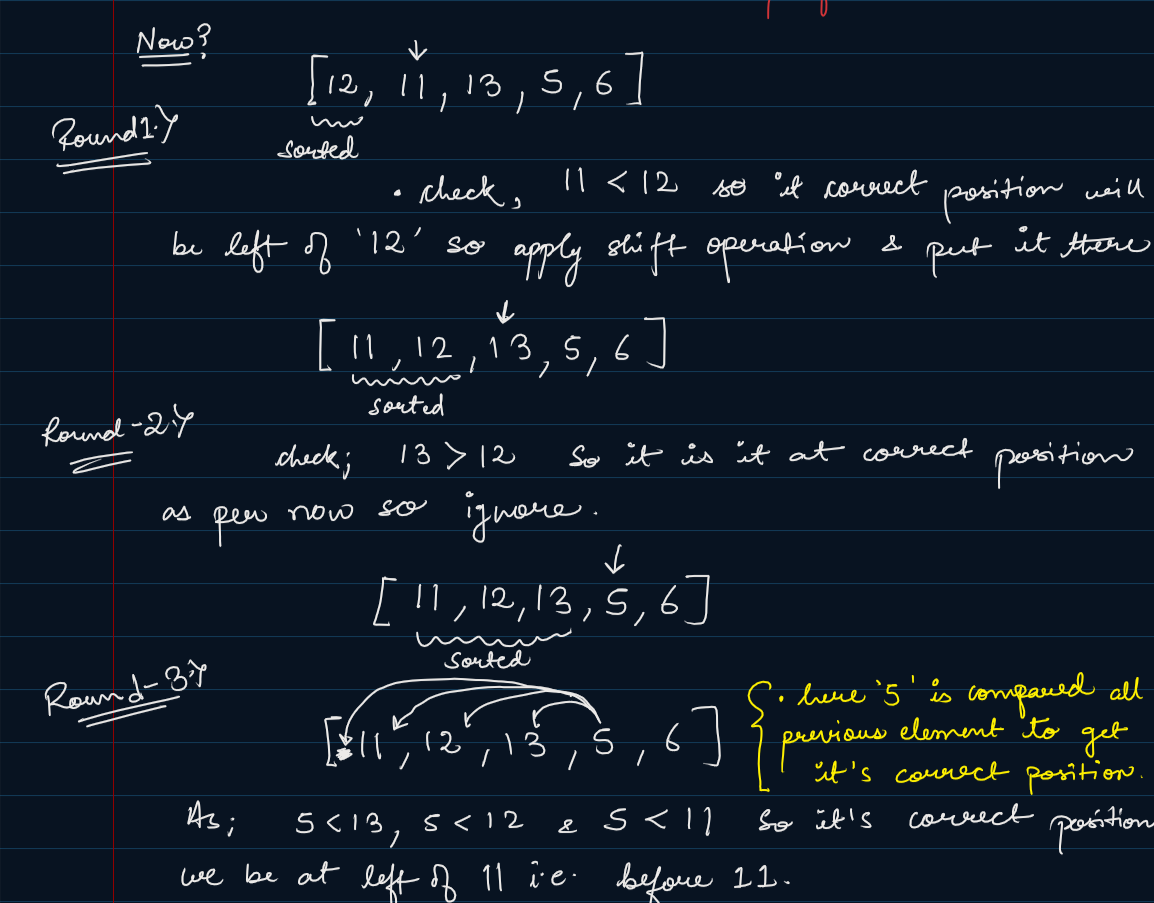 Now?
[12, 11, 13, 5, 6]
Round 1:
sorted
• check, 11 < 12 so it correct position will
be left of '12' so apply shift operation & put it there
[11, 12, 13, 5, 6]
sorted
Round-2:
check; 13 > 12 So it is it at correct position
as per now so ignore.
[11, 12, 13, 5, 6]
sorted
Round-3:
[11, 12, 13, 5, 6]
• here '5' is compared all
previous element to get
it's correct position.
As; 5<13, 5<12 & 5<11 So it's correct position
we be at left of 11 i.e. before 11.